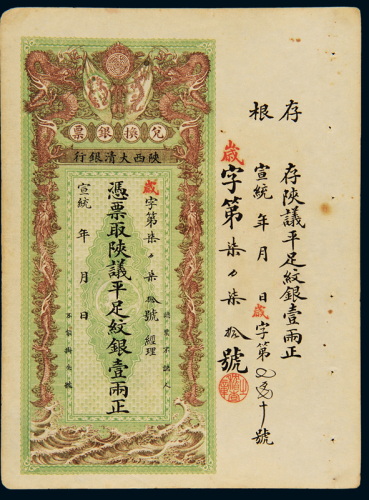 存根
存陝議平足紋銀壹兩正
宣統 年 月 日 歲字第 十號
歲字第柒 柒拾號
兌換銀票
陝西大清銀行
歲字第柒 柒拾號 經理
憑票取陝議平足紋銀壹兩正
宣統 年 月 日